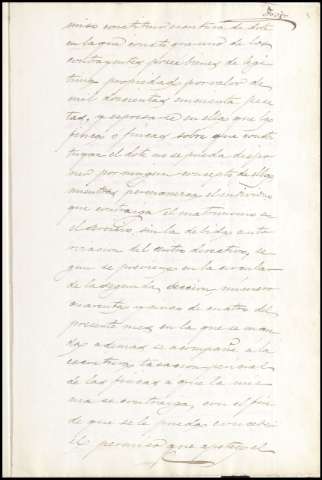 miso constituir escritura de dote
en la que conste que uno de los
contrayentes posee bienes de legi
tima propiedad por valor de
mil doscientas cincuenta pese
tas, y esprese en ellas que la
finca o fincas sobre que consti
tuyan el dote no se pueda dispo
ner por ningun concepto de ellas
mientras permanezca el individuo
que contraiga el matrimonio en
el servicio, sin la debida auto
rizacion del centro directivo, se
gun se previene en la circular
de la segunda Seccion número
cuarenta y uno de cuatro del
presente mes, en la que se man
da ademas se acompañe a la
escritura tasacion pericial
de las fincas a que la mis
ma se contraiga, con el fin
de que se le pueda conceder
el permiso que